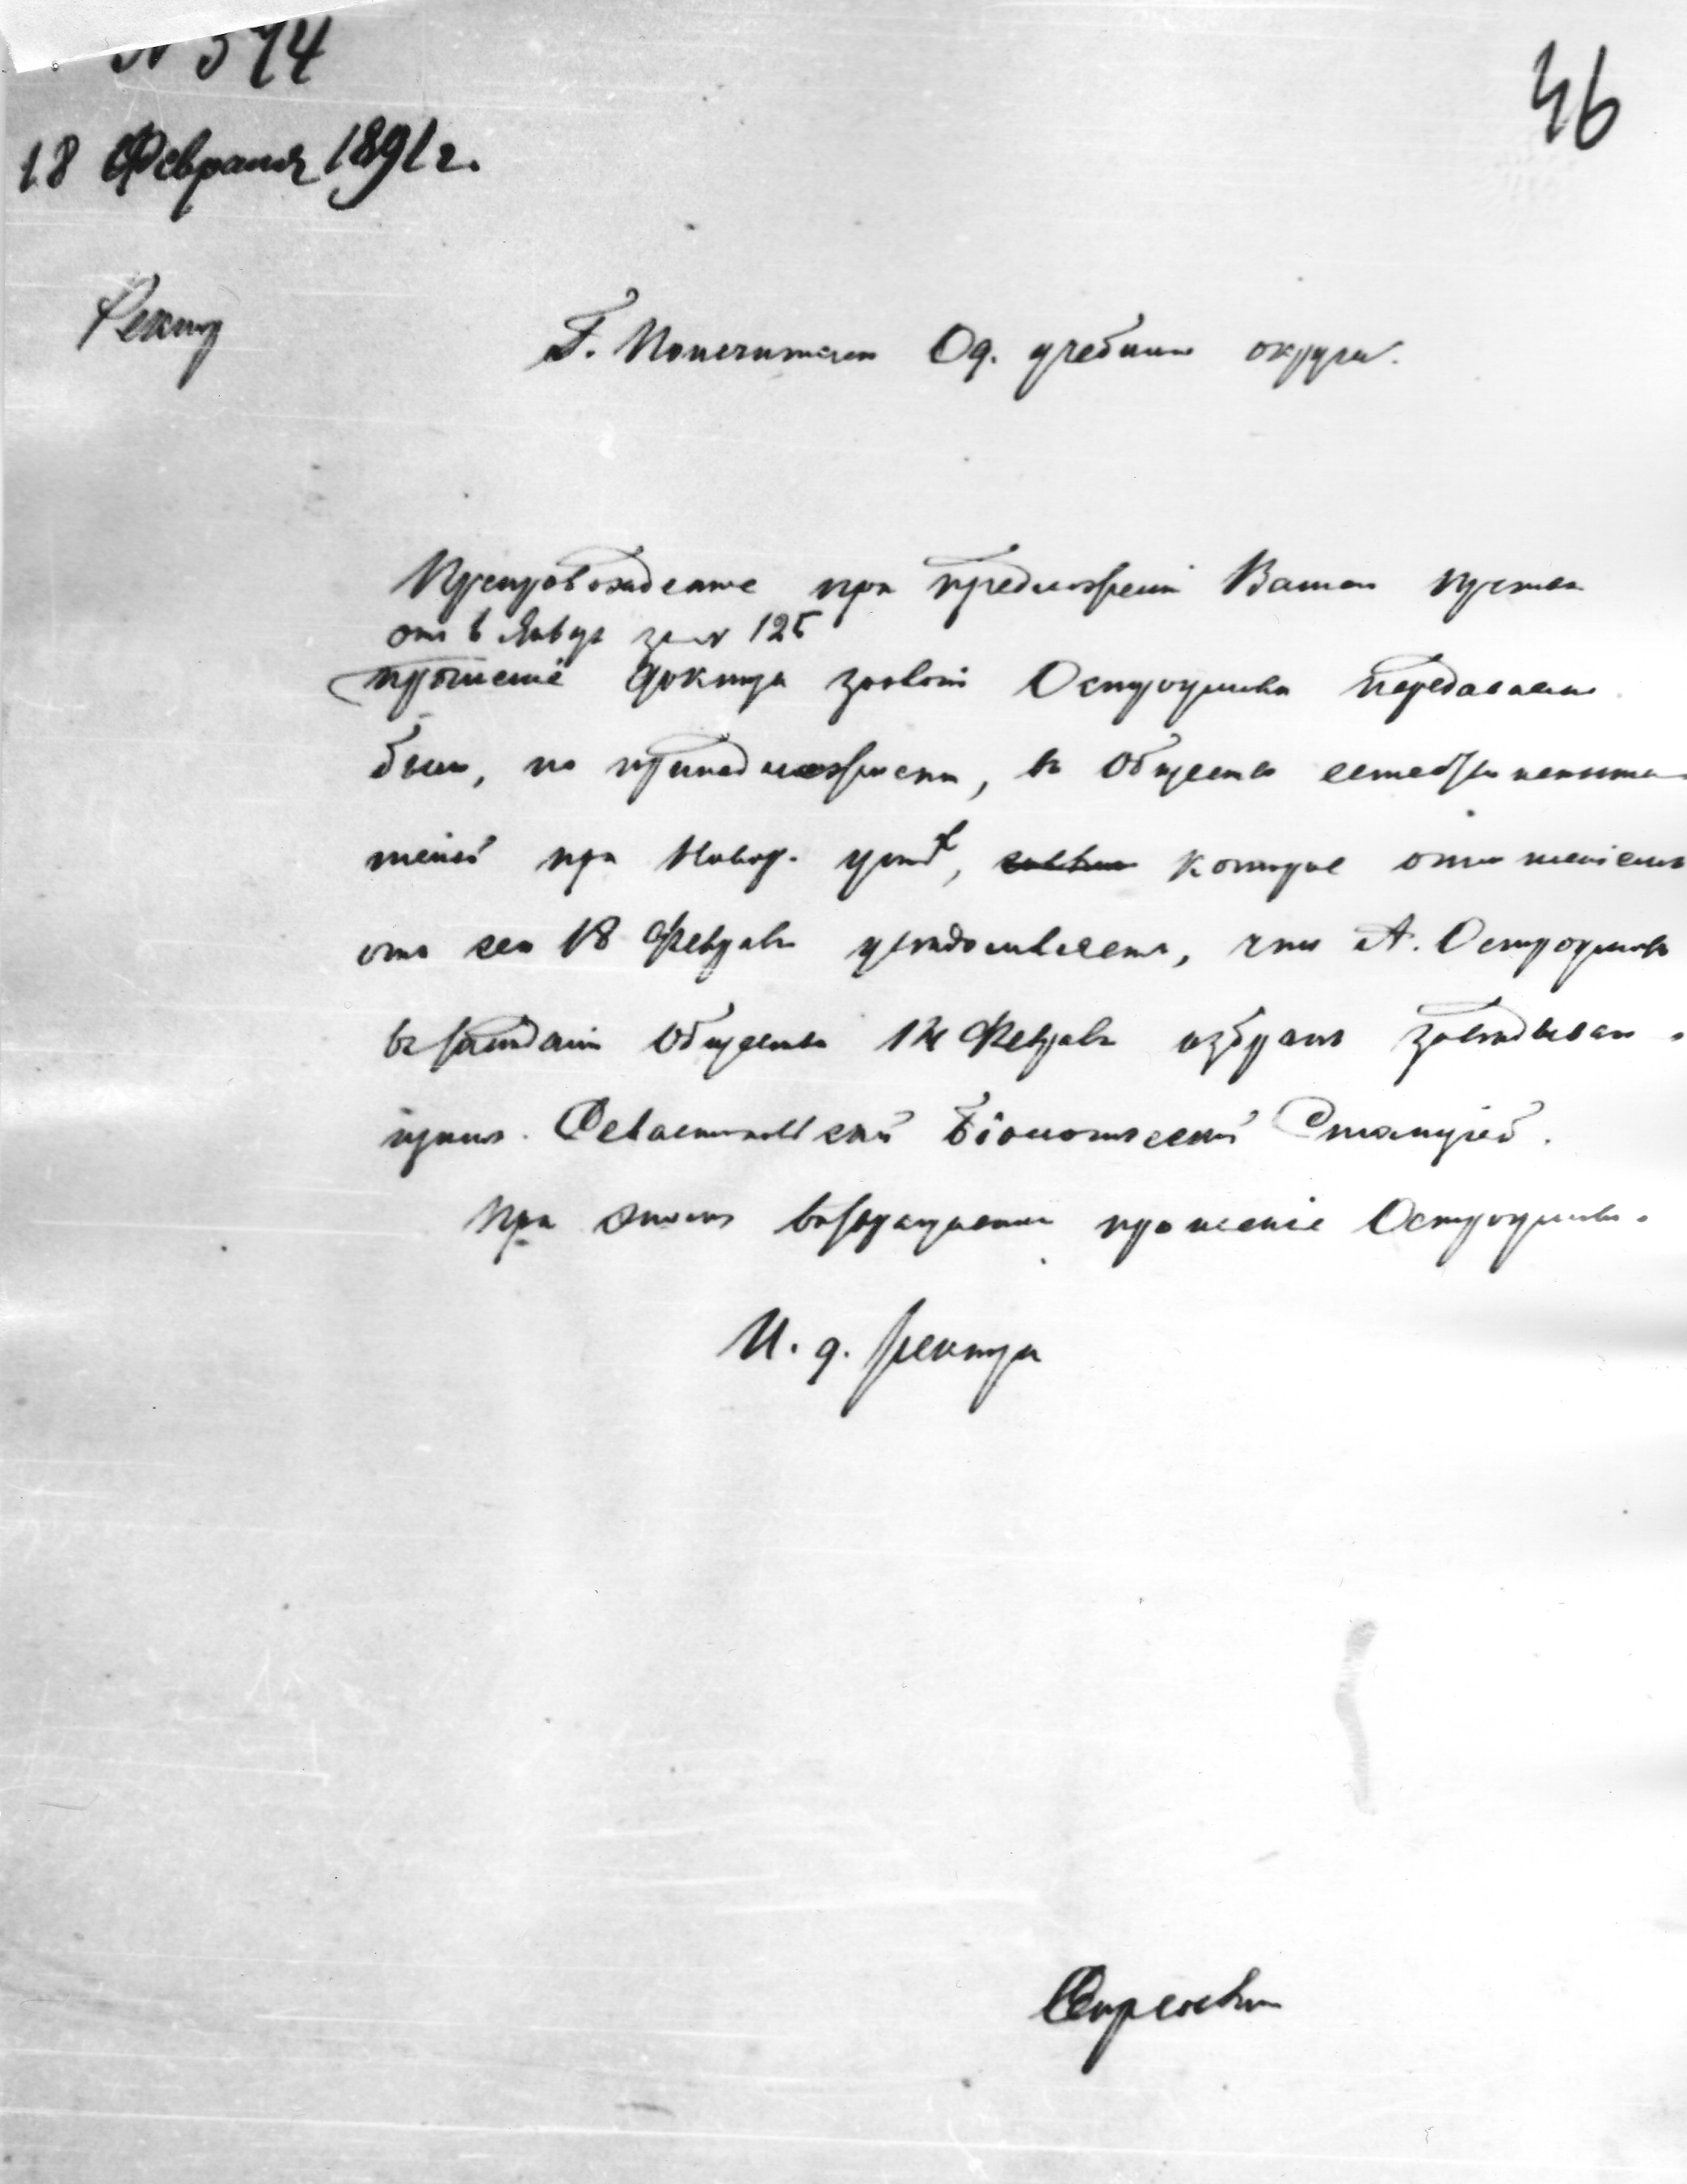 N 574
46
18 Февраля 1891 г.
Ректор
Г. Попечителю Од. учебнаго округа.
Препровожденное при предложеніи Вашего пр-ства
от 6 Янвр за N 125
прошеніе доктора зоологіи Остроумова передаваемо
было, по принадлежности, въ Общество естествоиспыта
телей при Новор. унив, которое отношеніемъ
отъ сего 18 Февраля увѣдомляетъ, что А. Остроумовъ
въ засѣданіи Общества 14 Февраля избранъ завѣдываю
щимъ Севастопольской Біологической Станціей.
При этомъ возвращается прошеніе Остроумова.
И. д. ректора